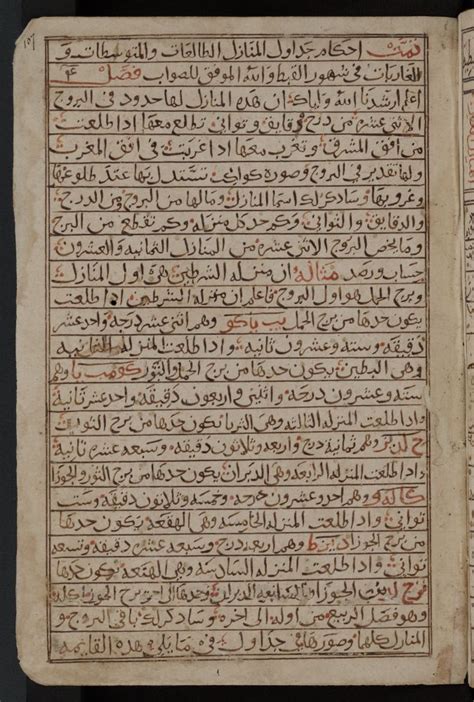 تمت احكام جداول المنازل الطالعات والمتوسطات و
الغاربات في شهور القبط والله الموفق للصواب فصل
اعلم ارشدنا الله واياك ان هذه المنازل لها حدود في البروج
الاثني عشره من درج ودقايق وثواني تطلع معها اذا طلعت
من افق المشرق وتغرب معها اذا غربت في افق المغرب
ولها تقدير في البروج وصورة كواكب تستدل بها عند طلوعها
وغروبها وساذكر لك اسما المنازل ومالها من البروج من الدرج
والدقايق والثواني وكم حد كل منزله وكم تقطع من البرج
وما يخص البروج الاثني عشره من المنازل الثمانيه والعشرون
حساب ورصد مثاله ان منزله الشرطين هي اول المنازل
وبرج الحمل هو اول البروج فاعلم ان منزله الشرطين اذا طلعت
يكون حدها من برج الحمل يب يا كو وهم اثني عشر درجه واحد عشر
دقيقه وسته وعشرون ثانيه واذا طلعت المنزله الثانيه
وهي البطين يكون حدها من برج الحمل والثور كو مب يا وهم
سته وعشرون درجه واثنين واربعون دقيقه واحد عشر ثانية
واذا طلعت المنزله الثالثه وهي الثريا يكون حدها من برج الثور
ح لد يز وهم ثمانية درج واربعه وثلاثون دقيقه وسبعه عشر ثانية
واذا طلعت المنزله الرابعه وهي الدبران يكون حدها من برج الثور والجوزا
كا له و وهم احد وعشرون درجه وخمسه وثلاثون دقيقه وست
ثواني واذا طلعت المنزله الخامسه وهي الهقعه يكون حدها
من برج الجوزا د يز ط وهم اربعه درج وسبعه عشر دقيقه وتسعه
ثواني واذا طلعت المنزله السادسه وهي الهنعه يكون حدها
من برج الجوزا وحدها الى اخر برج الجوزا كله
وهو فصل الربيع من اوله الى اخره وساذكر لك باقي البروج و
المنازل كلها وصورها في جداول في ما يلي هذه القايمه